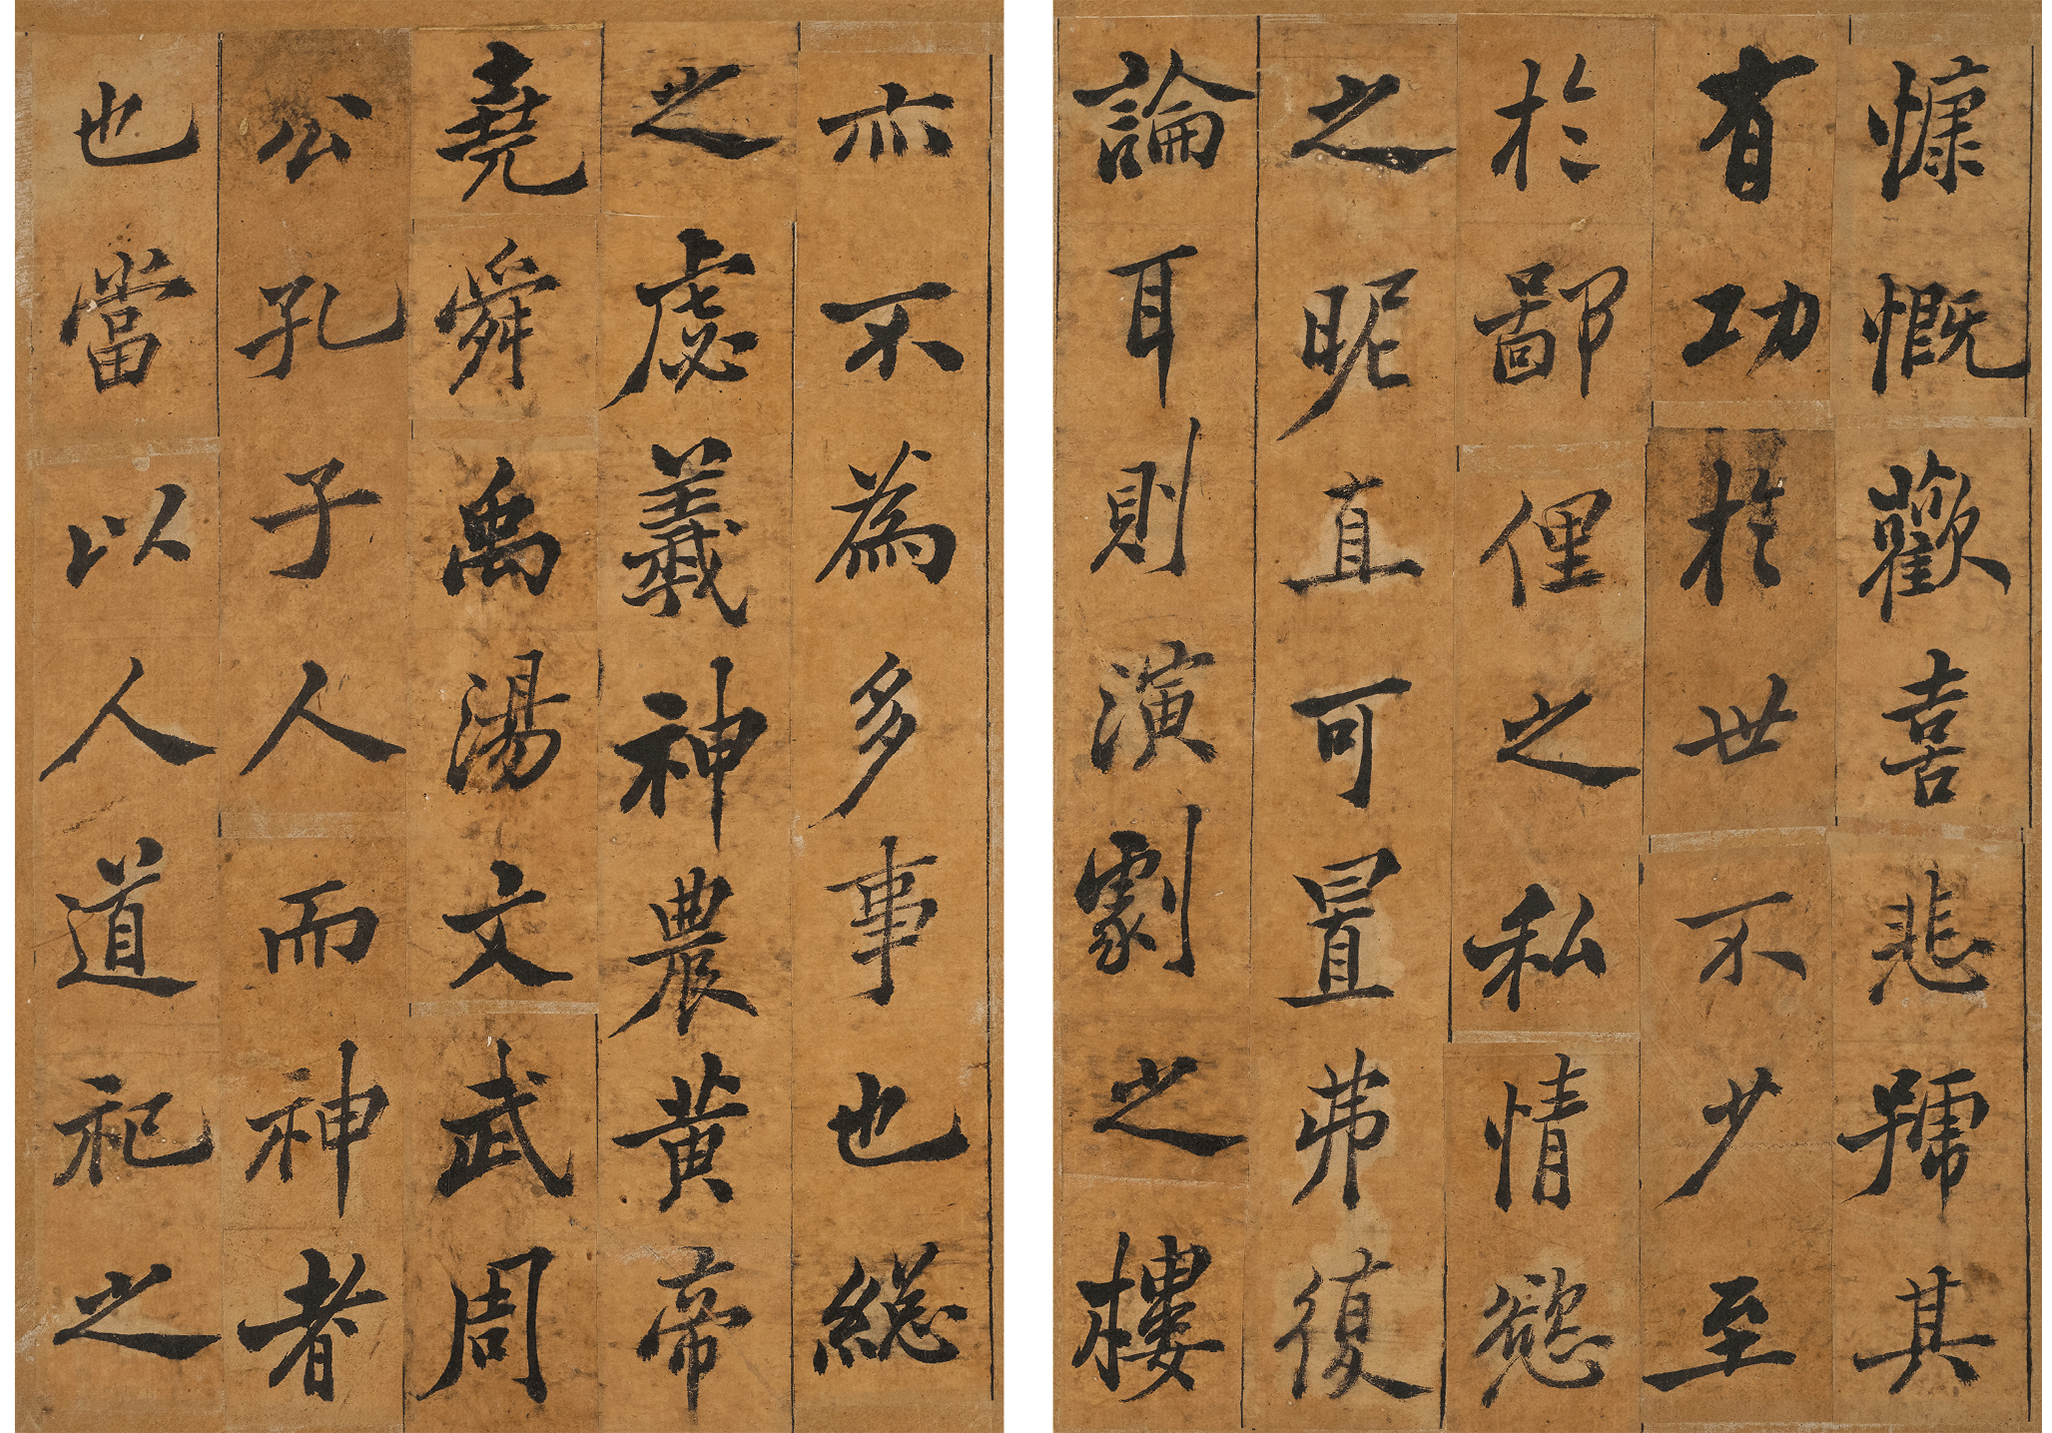 慷慨歡喜悲號其
有功於世不少至
於鄙俚之私情慾
之昵直可置弗復
論耳則演劇之樓
亦不為多事也總
之虙羲神農黃帝
堯舜禹湯文武周
公孔子人而神者
也當以人道祀之